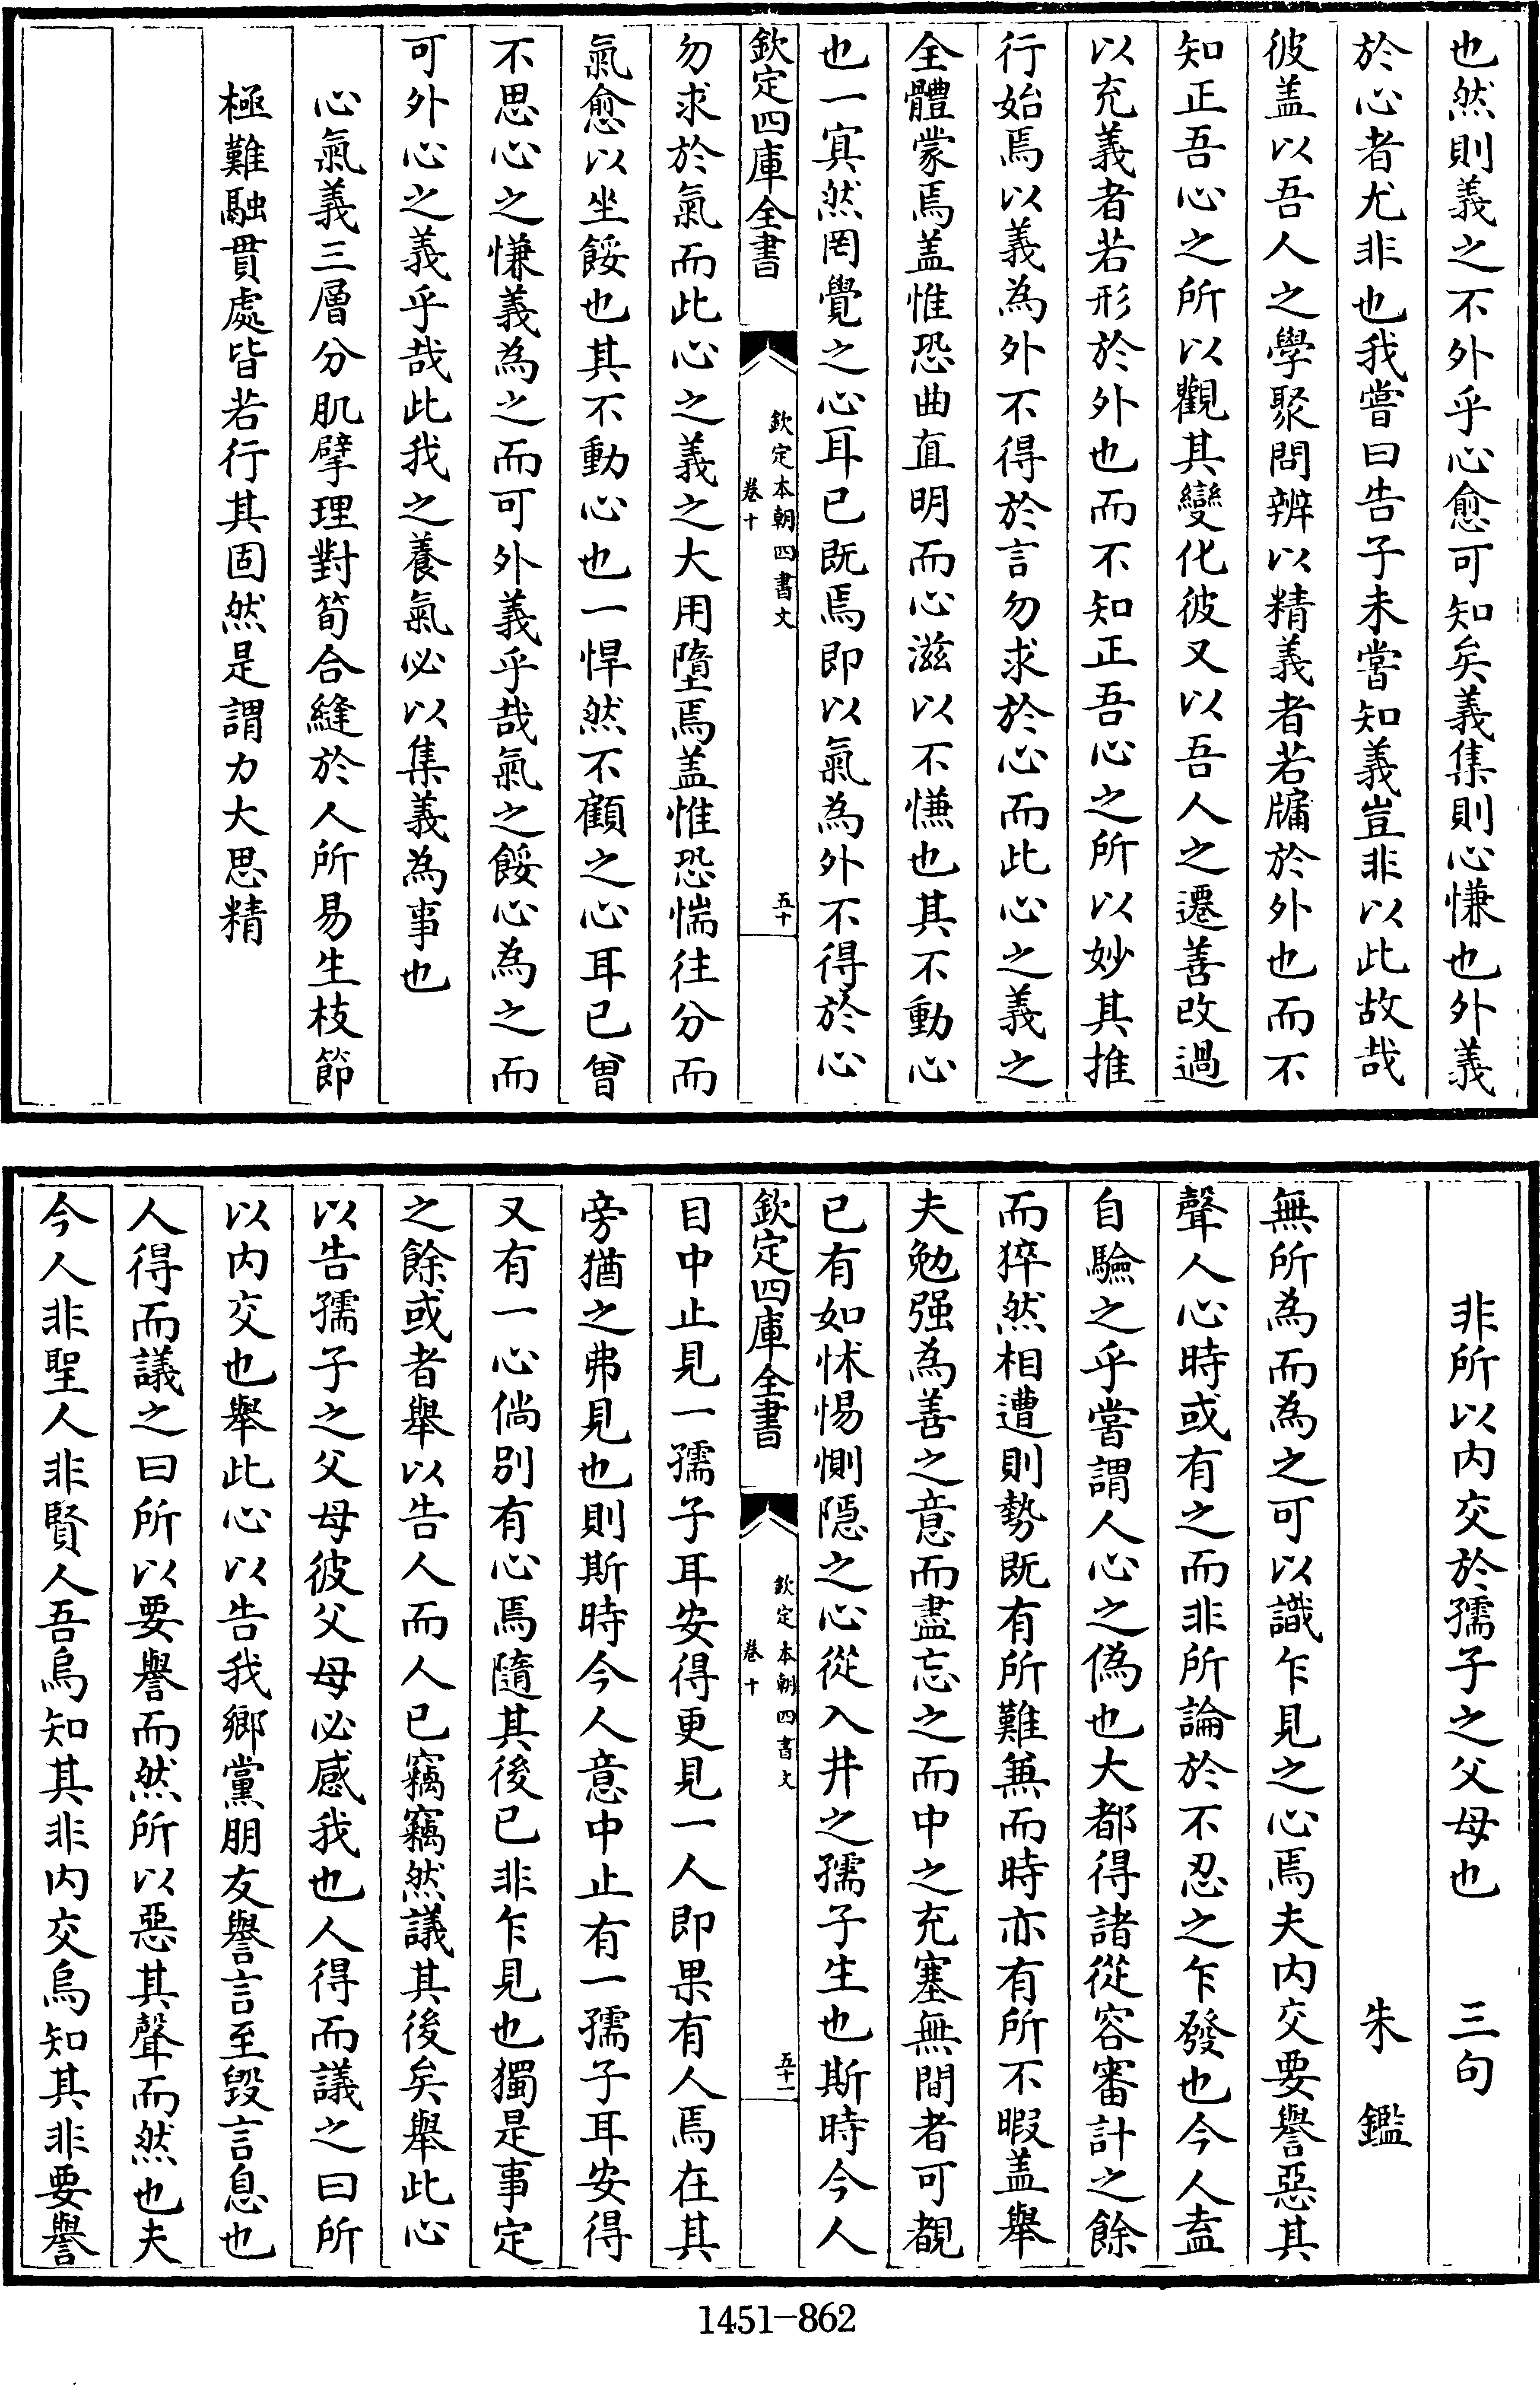 也然則義之不外乎心愈可知矣義集則心慊也外義
於心者尤非也我嘗曰告子未嘗知義豈非以此故哉
彼盖以吾人之學聚問辨以精義者若牖於外也而不
知正吾心之所以觀其變化彼又以吾人之遷善改過
以充義者若形於外也而不知正吾心之所以妙其推
行始焉以義為外不得於言勿求於心而此心之義之
全體蒙焉盖惟恐曲直明而心滋以不慊也其不動心
也一寘然罔覺之心耳已既焉即以氣為外不得於心
欽定四庫全書
欽定本朝四書文
卷十
五十
勿求於氣而此心之義之大用墮焉盖惟恐惴往分而
氣愈以坐餒也其不動心也一悍然不顧之心耳已曾
不思心之慊義為之而可外義乎哉氣之餒心為之而
可外心之義乎哉此我之養氣必以集義為事也
心氣義三層分肌擘理對筍合縫於人所易生枝節
極難融貫處皆若行其固然是謂力大思精
非所以内交於孺子之父母也 三句
朱鑑
無所為而為之可以識乍見之心焉夫内交要譽惡其
聲人心時或有之而非所論於不忍之乍發也今人盍
自驗之乎嘗謂人心之偽也大都得諸從容審計之餘
而猝然相遭則勢既有所難兼而時亦有所不暇盖舉
夫勉强為善之意而盡忘之而中之充塞無間者可覩
已有如怵惕惻隠之心從入井之孺子生也斯時今人
欽定四庫全書
欽定本朝四書文
卷十
五十一
目中止見一孺子耳安得更見一人即果有人焉在其
旁猶之弗見也則斯時今人意中止有一孺子耳安得
又有一心倘别有心焉隨其後已非乍見也獨是事定
之餘或者舉以告人而人已竊竊然議其後矣舉此心
以告孺子之父母彼父母必感我也人得而議之曰所
以内交也舉此心以告我鄉黨朋友譽言至毁言息也
人得而議之曰所以要譽而然所以惡其聲而然也夫
今人非聖人非賢人吾烏知其非内交烏知其非要譽
1451-862